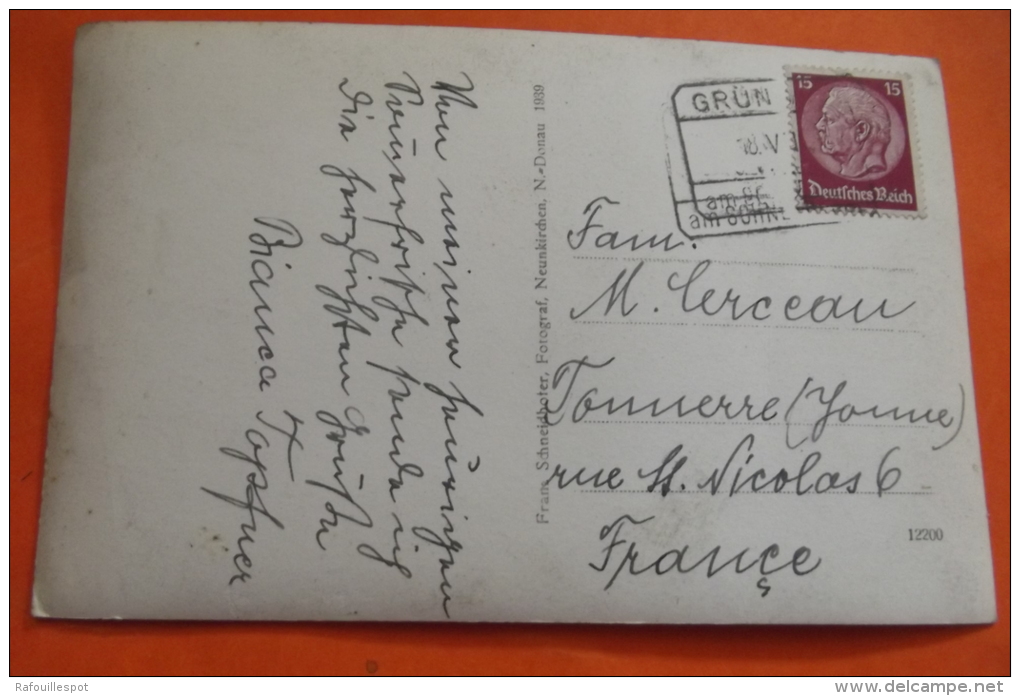 Von unserer heurigen
Sommerfrische sende ich
die herzlichsten Grüße
Bianca Topfner
Franz Schneidhofer, Fotograf, Neunkirchen, N.-Donau 1939
GRÜN
18.V
am
am SCHNE
15 15
Deutsches Reich
Fam.
M. Cerceau
Tonnerre (Yonne)
rue St. Nicolas 6
France
12200
Rafouillespot
www.delcampe.net